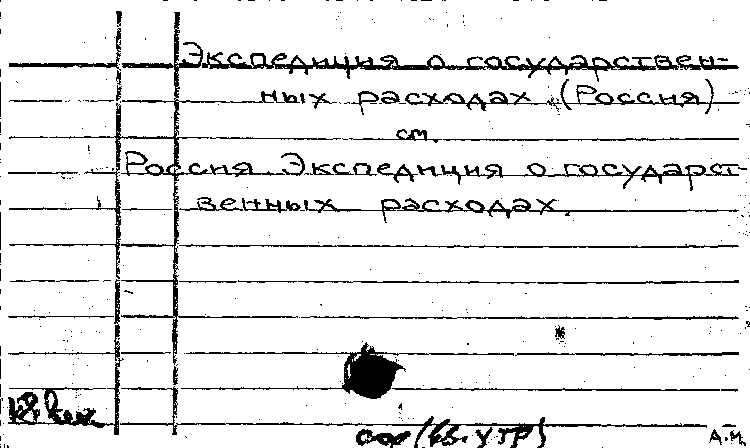 Экспедиция о государствен-
ных расходах (Россия)
см.
Россия. Экспедиция о государст-
венных расходах.
А.И.